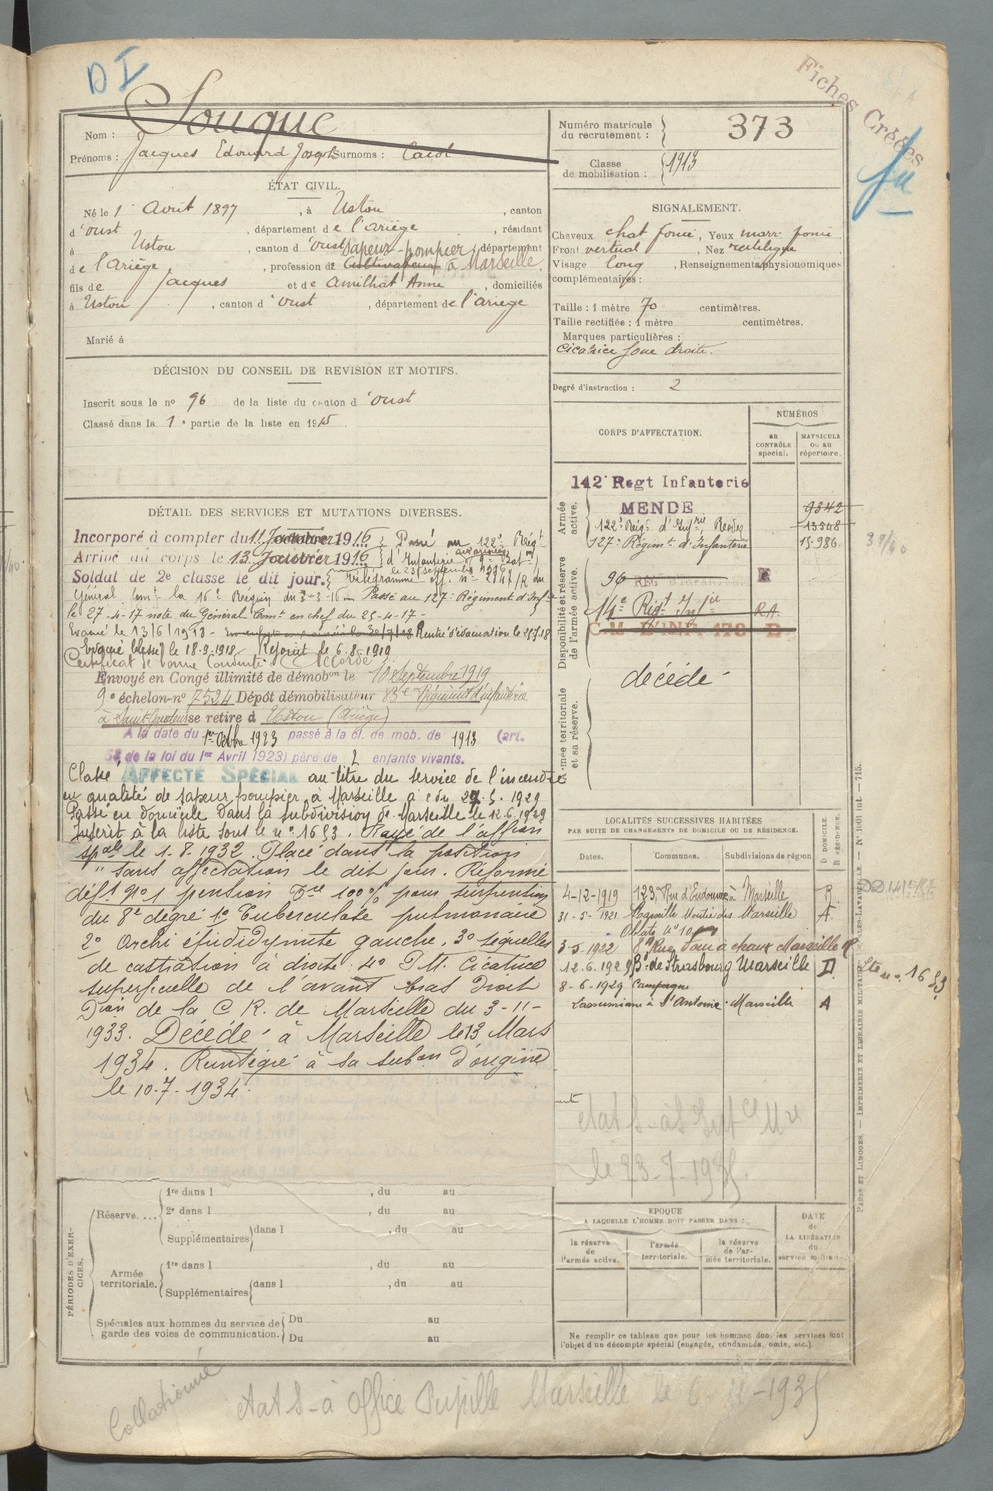 D I
Fiches Créées
Souque
Nom :
Prénoms : Jacques Edouard Joseph Surnoms : Cacol
Numéro matricule du recrutement : 373
Classe de mobilisation : 1913
ÉTAT CIVIL.
Né le 1 Avril 1897, à Ustou, canton
d'Oust, département de l'Ariège, résidant
à Ustou, canton d'Oust, département
de l'Ariège, profession de Cultivateur Sapeur-pompier à Marseille,
fils de Jacques et de Amilhat Anne, domiciliés
à Ustou, canton d'Oust, département de l'Ariège
Marié à
SIGNALEMENT.
Cheveux chat foncé, Yeux marr. foncé
Front vertical, Nez rectiligne
Visage long, Renseignements physionomiques
complémentaires :
Taille : 1 mètre 70 centimètres.
Taille rectifiée : 1 mètre centimètres.
Marques particulières :
Cicatrice joue droite.
Degré d'instruction : 2
DÉCISION DU CONSEIL DE REVISION ET MOTIFS.
Inscrit sous le no 96 de la liste du canton d'Oust
Classé dans la 1e partie de la liste en 1915
CORPS D'AFFECTATION.
NUMÉROS
au CONTRÔLE spécial.
MATRICULE OU AU répertoire.
Armée active.
142e Regt Infanterie
MENDE
9842
122e Régt d'Infrie Rodez
13548
127e Régiment d'Infanterie
15.986
39/40
Disponibilité et réserve de l'armée active.
96 REG
14e Régt Infie
RA
C.M. D'INF. 173
décédé
Armée territoriale et sa réserve.
DÉTAIL DES SERVICES ET MUTATIONS DIVERSES.
Incorporé à compter du 11 1916 Passé au 122e Régt
Arrivé au corps le 13 1916 d'Infanterie
Soldat de 2e classe le dit jour. Télégramme off. no 2747/R du
Général Comt la 16e Région du 3-3-16 Passé au 127e Régiment d'Inf
le 27-4-17 note du Général Comt en chef du 25-4-17-
Evacué le 13/6/1918 - Rentré d'évacuation le 25.7.18
Evacué (blessé) le 18-9-1918. Rejoint le 6.8.1919
Certificat de bonne Conduite : Accordé
Envoyé en Congé illimité de démobon le 10 Septembre 1919
9e échelon-no 7524 Dépôt démobilisateur 83e Régiment d'infanterie
à Saint-Gaudens se retire à Ustou (Ariège)
A la date du 1er Octbre 1923 passé à la cl. de mob. de 1913 (art.
58, de la loi du 1er Avril 1923) père de 2 enfants vivants.
Classé AFFECTÉ SPÉCIAL au titre du service de l'incendie
en qualité de sapeur pompier à Marseille à c du 29.5.1929
Passé en domicile dans la subdivision de Marseille le 12.6.1929
Inscrit à la liste sous le no 1653. Rayé de l'affion
spale le 1.8.1932. Placé dans la position
" sans affectation le dit jour. Réformé
déft no 1 pension Pre 100% pour
du 8e degré 1o Tuberculose pulmonaire
2o Orchi épididymite gauche. 3o séquelles
de castration à droite 4o Cicatrice
superficielle de l'avant bras droit
Dion de la C R. de Marseille du 3-11-
1933. Décédé à Marseille le 13 Mars
1934. Réintégré à sa subon d'origine
le 10-7-1934.
LOCALITÉS SUCCESSIVES HABITÉES
PAR SUITE DE CHANGEMENTS DE DOMICILE OU DE RÉSIDENCE.
Dates.
Communes.
Subdivisions de région
D DOMICILE. R RÉSIDENCE.
4-12-1919 123, Rue d'Endoume à Marseille R
31-5-1921 Marseille A.
3-5-1922 8 Rue Four à chaux Marseille R
12.6.1929 Bd de Strasbourg Marseille D
Liste no 1653
8-6-1929 Campagne
à St Antoine. Marseille A
le 23-7-1935.
EPOQUE
A LAQUELLE L'HOMME DOIT PASSER DANS :
la réserve de l'armée active.
l'armée territoriale.
la réserve de l'armée territoriale.
DATE de LA LIBÉRATION du service militaire
Ne remplir ce tableau que pour les hommes dont les services font
l'objet d'un décompte spécial (engagés, condamnés, omis, etc.)
PÉRIODES D'EXERCICES.
Réserve.... 1re dans l , du au
2e dans l , du au
Supplémentaires dans l , du au
Armée territoriale. 1re dans l , du au
Supplémentaires dans l , du au
Spéciales aux hommes du service de garde des voies de communication. Du au
Du au
PARIS ET LIMOGES. — IMPRIMERIE ET LIBRAIRIE MILITAIRE
Collationné
Etat S-à Office Pupille Marseille le 6-11-1935